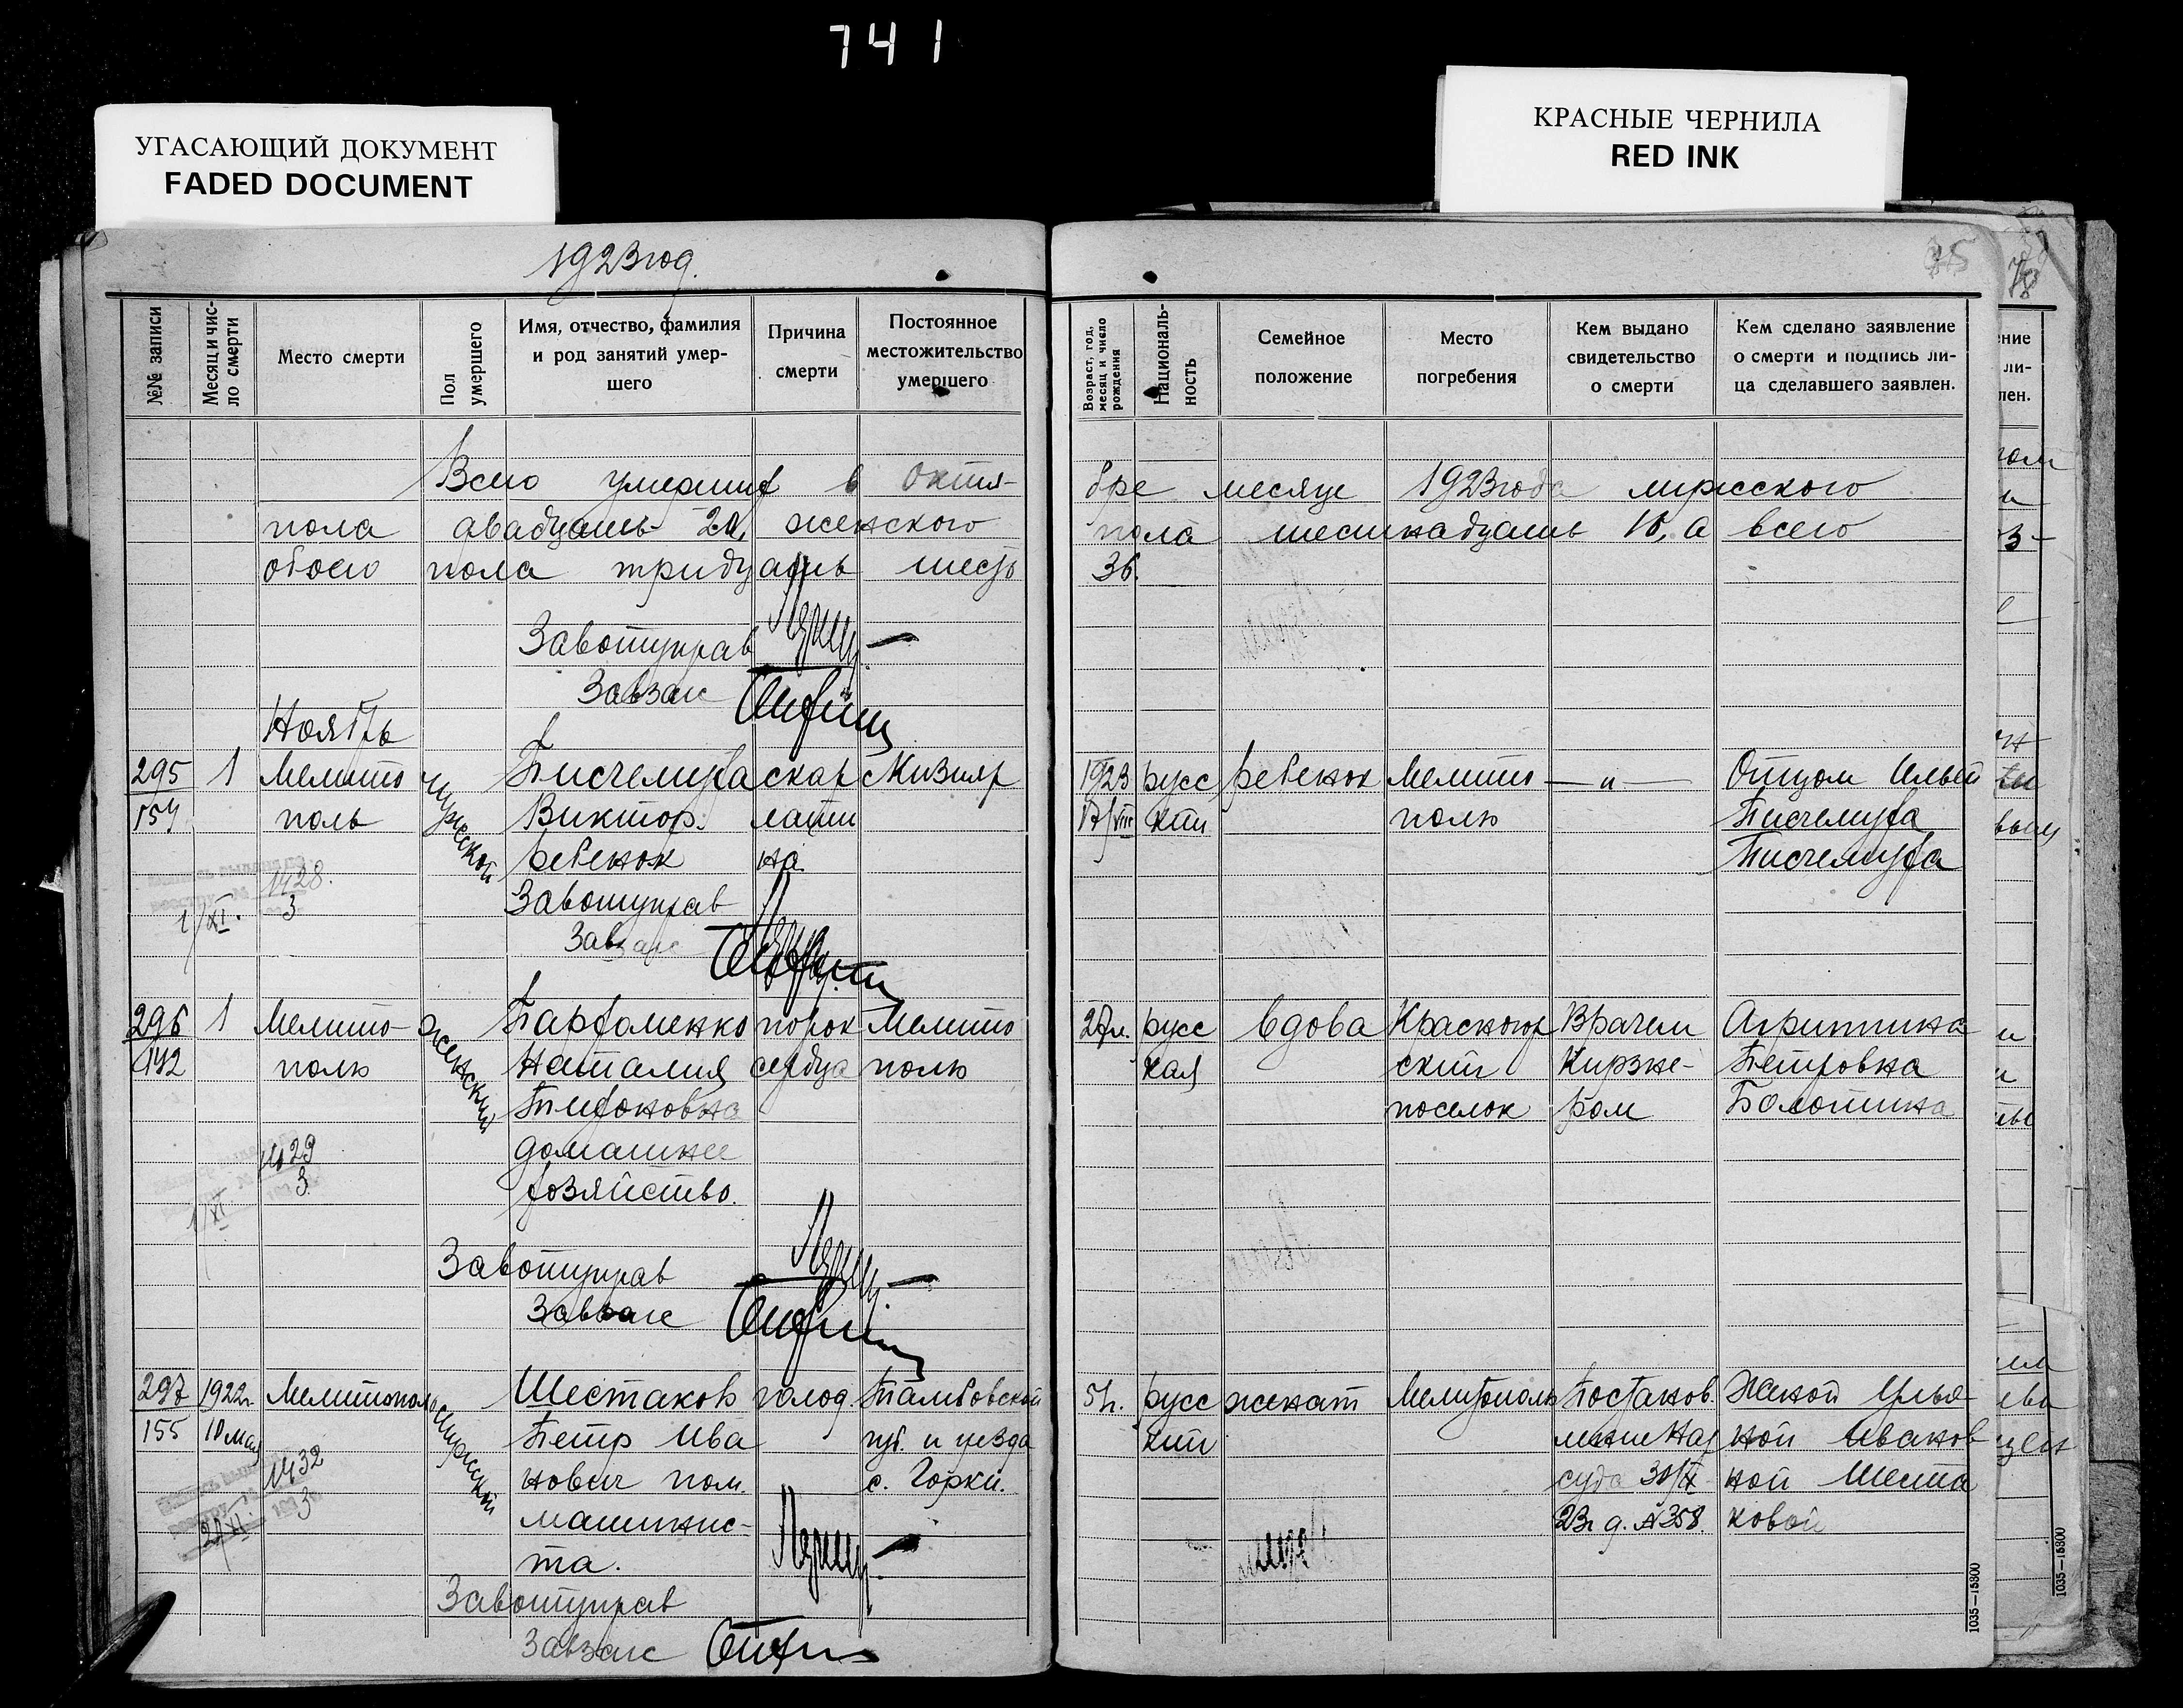 741
УГАСАЮЩИЙ ДОКУМЕНТ
FADED DOCUMENT
КРАСНЫЕ ЧЕРНИЛА
RED INK
1923 год.
№№ записи
Месяц и чис-
ло смерти
Место смерти
Пол
умершего
Имя, отчество, фамилия
и род занятий умер-
шего
Причина
смерти
Постоянное
местожительство
умершего
Возраст, год,
месяц и число
рождения
Националь-
ность
Семейное
положение
Место
погребения
Кем выдано
свидетельство
о смерти
Кем сделано заявление
о смерти и подпись ли-
ца сделавшего заявлен.
Всего умерших в октя-
бре месяце 1923 года мужского
пола двадцать 20, женского
пола шестнадцать 16, а всего
обоего пола тридцать шесть
36.
Завотуправ
Завзагс
Ноябрь
295
154
1
Мелито
поль
мужской
Писчемуха
Виктор.
ребенок
скар
лати
на
с Кизияр
1923
17/VIII
русс
кий
ребенок
Мелито
поль
— „ —
Отцом Ильей
Писчемуха
Писчемуха
1428.
3
1/XI.
Завотуправ
Завзагс
296
142
1
Мелито-
поль
женский
Парфоменко
Наталия
Тихоновна
домашнее
хозяйство.
порок
сердца
Мелито
поль
27 л.
русс
кая
вдова
Красногор
ский
поселок
Врачем
Кирзне-
ром
Агрипина
Петровна
Болотина
1429
3
1/XI
Завотуправ
Завзагс
297
155
1922 г.
10 мая
Мелитополь
мужской
Шестаков
Петр Ива
нович пом.
машинис-
та.
голод.
Тамбовской
губ. и уезда
с. Горки.
51 г.
русс
кий
женат
Мелитополь
Постанов.
лением Нар
суда 30/X
23 г д. № 358.
Женой Улья
ной Иванов
ной Шеста
ковой
1432
3
Завотуправ
Завзагс
1035—15800
1035—15800